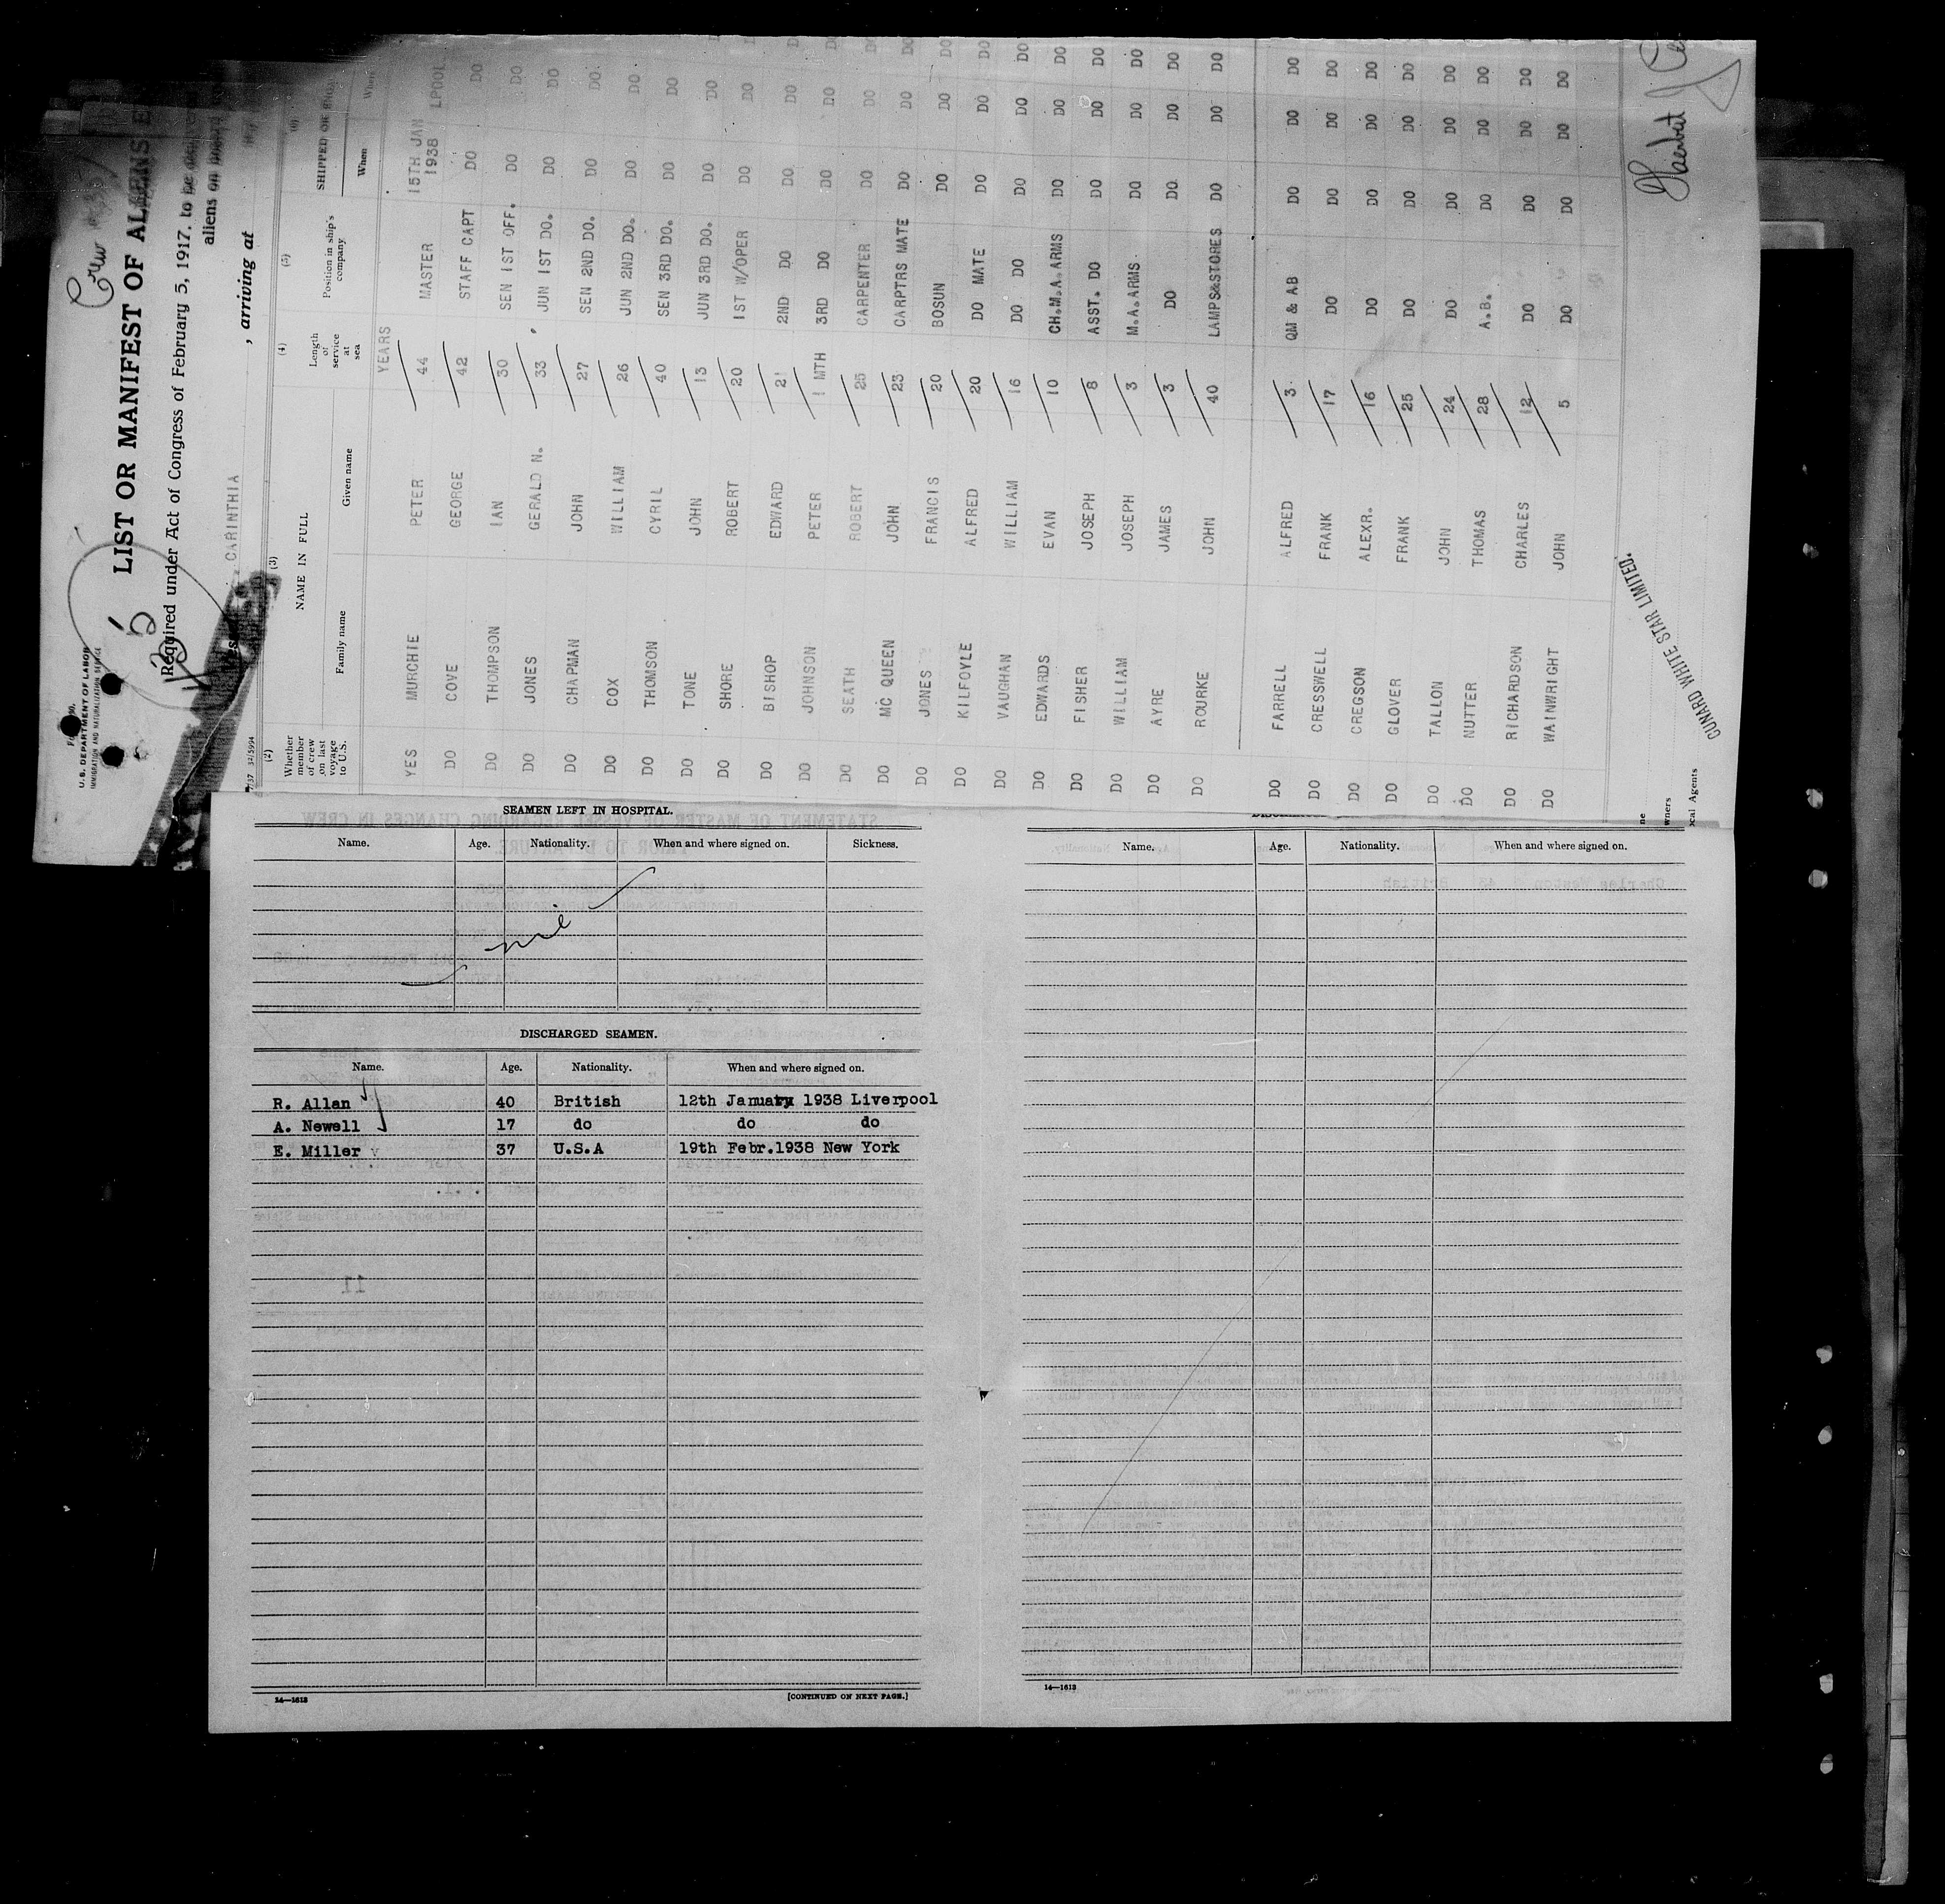 Crew
LIST OR MANIFEST OF ALIENS E
Required under Act of Congress of February 5, 1917, to be
aliens on
CARINTHIA , arriving at
U. S. DEPARTMENT OF LABOR
IMMIGRATION AND NATURALIZATION SERVICE
(2) (3) (4) (5) (6)
Whether member of crew on last voyage to U.S. NAME IN FULL Length of service at sea Position in ship's company SHIPPED OR
Family name Given name When
YEARS
YES MURCHIE PETER 44 MASTER 15TH JAN 1938 LPOOL
DO COVE GEORGE 42 STAFF CAPT DO DO
DO THOMPSON IAN 30 SEN 1ST OFF. DO DO
DO JONES GERALD N. 33 JUN 1ST DO. DO DO
DO CHAPMAN JOHN 27 SEN 2ND DO. DO DO
DO COX WILLIAM 26 JUN 2ND DO. DO DO
DO THOMSON CYRIL 40 SEN 3RD DO. DO DO
DO TONE JOHN 13 JUN 3RD DO. DO DO
DO SHORE ROBERT 20 1ST W/OPER DO DO
DO BISHOP EDWARD 21 2ND DO DO DO
DO JOHNSON PETER 1 MTH 3RD DO DO DO
DO SEATH ROBERT 25 CARPENTER DO DO
DO MC QUEEN JOHN 23 CARPTRS MATE DO DO DO
DO JONES FRANCIS 20 BOSUN DO DO DO
DO KILFOYLE ALFRED 20 DO MATE DO DO DO
DO VAUGHAN WILLIAM 16 DO DO DO DO DO
DO EDWARDS EVAN 10 CH.M.A.ARMS DO DO DO
DO FISHER JOSEPH 8 ASST. DO DO DO DO
DO WILLIAM JOSEPH 3 M.A.ARMS. DO DO DO
DO AYRE JAMES 3 DO DO DO DO
DO ROURKE JOHN 40 LAMPS&STORES DO DO DO
DO FARRELL ALFRED 3 QM & AB DO DO DO
DO CRESSWELL FRANK 17 DO DO DO DO
DO CREGSON ALEXR. 16 DO DO DO DO
DO GLOVER FRANK 25 DO DO DO DO
DO TALLON JOHN 24 DO DO DO DO
DO NUTTER THOMAS 28 A.B. DO DO DO
DO RICHARDSON CHARLES 12 DO DO DO DO
DO WAINWRIGHT JOHN 5 DO DO DO DO
CUNARD WHITE STAR LIMITED.
Herbert
wners
ocal Agents
SEAMEN LEFT IN HOSPITAL.
Name. Age. Nationality. When and where signed on. Sickness.
nil
DISCHARGED SEAMEN.
Name. Age. Nationality. When and where signed on.
R. Allan 40 British 12th January 1938 Liverpool
A. Newell 17 do do do
E. Miller 37 U.S.A 19th Febr.1938 New York
14—1613 [CONTINUED ON NEXT PAGE.]
Name. Age. Nationality. When and where signed on.
14—1613